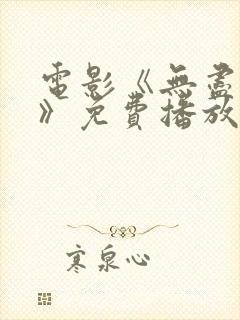 電影《無盡
》免費播放
寒泉心